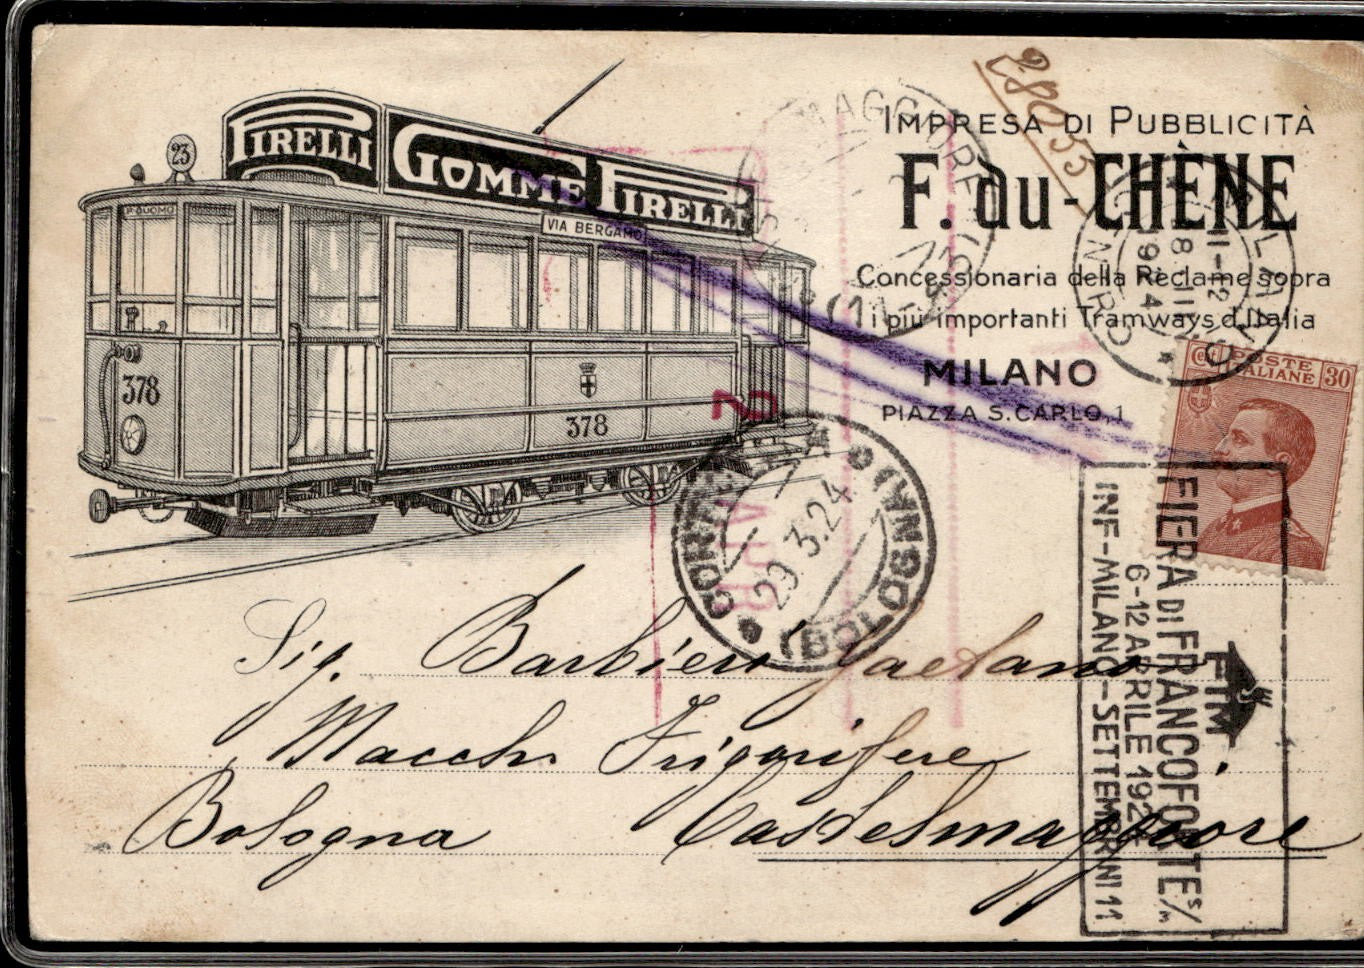 28055
IMPRESA DI PUBBLICITÀ
F. du-CHÈNE
Concessionaria della Réclame sopra
i più importanti Tramways d'Italia
MILANO
PIAZZA S. CARLO, 1
23
PIRELLI
GOMME PIRELLI
P. DUOMO
VIA BERGAMO
378
378
MAGGIORE
MILANO
CENTRO
Cent POSTE ITALIANE 30
29.3.24
(BOLOGNA)
FIM
FIERA DI FRANCOFORTE S/M
6-12 APRILE 192
INF-MILANO-SETTEMBRINI 11
Sig. Barbieri Gaetano
Macchi Frigorifere
Bologna Castelmaggiore